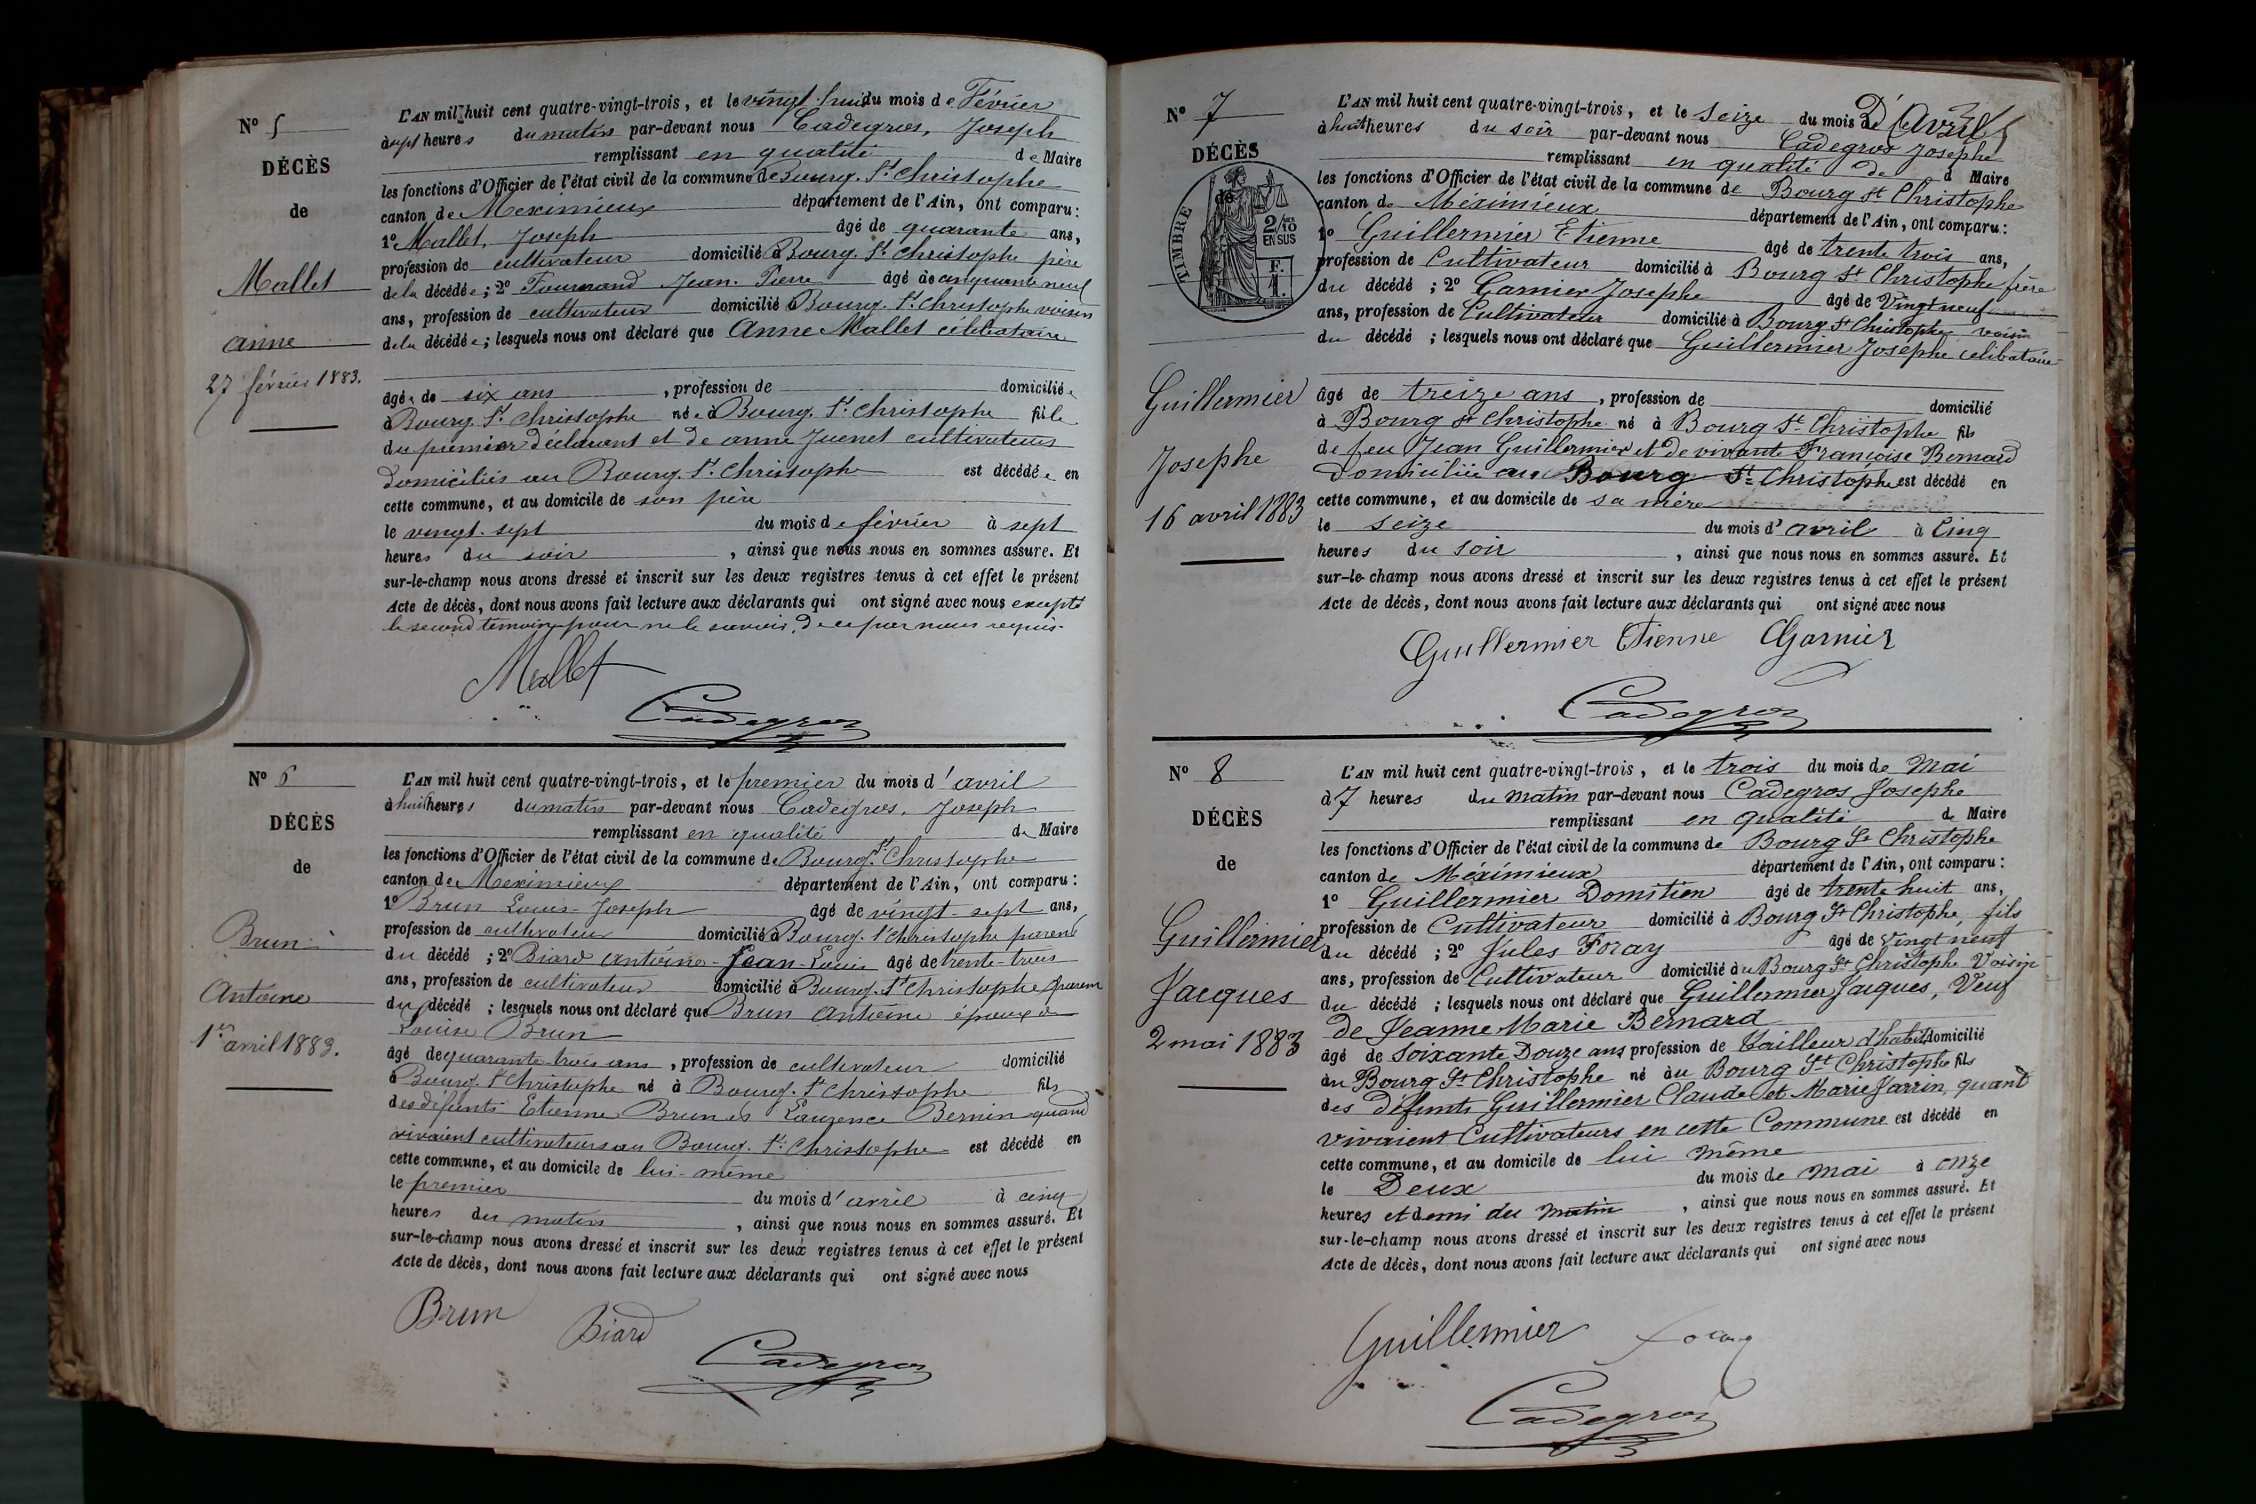 N° 5
DÉCÈS
de
Mallet
anne
27 février 1883.
L'AN mil huit cent quatre-vingt-trois, et le vingt huit du mois de Février
à sept heures du matin par-devant nous Cadegros, Joseph
remplissant en qualité de Maire
les fonctions d'Officier de l'état civil de la commune de Bourg. St. Christophe
canton de Meximieux département de l'Ain, ont comparu :
1° Mallet, Joseph âgé de quarante ans,
profession de cultivateur domicilié à Bourg. St. Christophe père
de la décédée ; 2° Jean. Pierre âgé de cinquante neuf
ans, profession de cultivateur domicilié à Bourg. St. Christophe voisin
de la décédée ; lesquels nous ont déclaré que Anne Mallet célibataire
âgée de six ans , profession de domiciliée
à Bourg. St. Christophe née à Bourg. St. Christophe fille
du premier déclarant et de anne Juenet cultivateurs
domiciliés au Bourg. St. Christophe est décédée en
cette commune, et au domicile de son père
le vingt. sept du mois de février à sept
heures du soir , ainsi que nous nous en sommes assuré. Et
sur-le-champ nous avons dressé et inscrit sur les deux registres tenus à cet effet le présent
Acte de décès, dont nous avons fait lecture aux déclarants qui ont signé avec nous excepté
le second témoin pour ne le savoir, de ce par nous requis.
Mallet
Cadegros
N° 6
DÉCÈS
de
Brun
Antoine
1er avril 1883.
L'AN mil huit cent quatre-vingt-trois, et le premier du mois d'avril
à huit heures du matin par-devant nous Cadegros, Joseph
remplissant en qualité de Maire
les fonctions d'Officier de l'état civil de la commune de Bourg. St Christophe
canton de Meximieux département de l'Ain, ont comparu :
1° Brun Louis-Joseph âgé de vingt-sept ans,
profession de cultivateur domicilié à Bourg. St Christophe parent
du décédé ; 2° Biard antoine-Jean-Louis âgé de trente-trois
ans, profession de cultivateur domicilié à Bourg. St Christophe parent
du décédé ; lesquels nous ont déclaré que Brun Antoine époux de
Louise Brun
âgé de quarante-trois ans , profession de cultivateur domicilié
à Bourg. St Christophe né à Bourg. St Christophe fils
des défunts Etienne Brun et Laurence Bernin quand
vivaient cultivateurs au Bourg. St. Christophe est décédé en
cette commune, et au domicile de lui-même
le premier du mois d'avril à cinq
heures du matin , ainsi que nous nous en sommes assuré. Et
sur-le-champ nous avons dressé et inscrit sur les deux registres tenus à cet effet le présent
Acte de décès, dont nous avons fait lecture aux déclarants qui ont signé avec nous
Brun Biard
Cadegros
N° 7
DÉCÈS
de
TIMBRE
2/10
EN SUS
F.
1.
Guillermier
Josephe
16 avril 1883
L'AN mil huit cent quatre-vingt-trois, et le seize du mois de D'Avril
à huit heures du soir par-devant nous Cadegros Josephe
remplissant en qualité de d Maire
les fonctions d'Officier de l'état civil de la commune de Bourg St Christophe
canton de Méximieux département de l'Ain, ont comparu :
1° Guillermier Etienne âgé de trente trois ans,
profession de Cultivateur domicilié à Bourg St Christophe frère
du décédé ; 2° Garnier Josephe âgé de Vingt neuf
ans, profession de Cultivateur domicilié à Bourg St Christophe voisin
du décédé ; lesquels nous ont déclaré que Guillermier Josephe celibataire
âgé de treize ans , profession de domicilié
à Bourg St Christophe né à Bourg St Christophe fils
de feu Jean Guillermier et de vivante Françoise Bernard
Domiciliée au Bourg St Christophe est décédé en
cette commune, et au domicile de sa mère
le seize du mois d'avril à Cinq
heures du soir , ainsi que nous nous en sommes assuré. Et
sur-le-champ nous avons dressé et inscrit sur les deux registres tenus à cet effet le présent
Acte de décès, dont nous avons fait lecture aux déclarants qui ont signé avec nous
Guillermier Etienne Garnier
Cadegros
N° 8
DÉCÈS
de
Guillermier
Jacques
2 mai 1883
L'AN mil huit cent quatre-vingt-trois, et le trois du mois de Mai
à 7 heures du matin par-devant nous Cadegros Josephe
remplissant en qualité de Maire
les fonctions d'Officier de l'état civil de la commune de Bourg St Christophe
canton de Méximieux département de l'Ain, ont comparu :
1° Guillermier Domitien âgé de trente huit ans,
profession de Cultivateur domicilié à Bourg St Christophe, fils
du décédé ; 2° Jules Foray âgé de Vingt neuf
ans, profession de Cultivateur domicilié au Bourg St Christophe Voisin
du décédé ; lesquels nous ont déclaré que Guillermier Jacques, Veuf
de Jeanne Marie Bernard
âgé de soixante Douze ans profession de tailleur d'habits domicilié
au Bourg St Christophe né au Bourg St Christophe fils
des défunts Guillermier Claude et Marie Jarrin, quand
vivaient Cultivateurs en cette Commune est décédé en
cette commune, et au domicile de lui même
le Deux du mois de mai à onze
heures et demi du matin , ainsi que nous nous en sommes assuré. Et
sur-le-champ nous avons dressé et inscrit sur les deux registres tenus à cet effet le présent
Acte de décès, dont nous avons fait lecture aux déclarants qui ont signé avec nous
Guillermier Foray
Cadegros